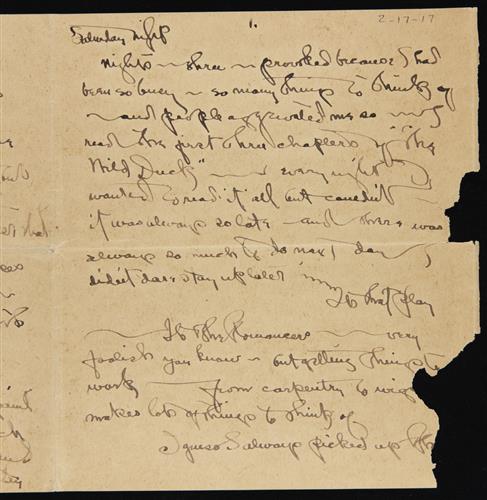 1.
2-17-17
Saturday night
nights — three — provoked because I had
been so busy — so many things to think of
— and people aggravated me so — I
read the first three chapters of "The
Wild Duck" — every night I
wanted to read it all but couldn't
it was always so late — and there was
always so much to do next day I
didn't dare stay up later
It's that play
— It's The Romancers — very
foolish you know — but getting things to
work — from carpentry to wigs
makes lots of things to think of
I guess I always picked up